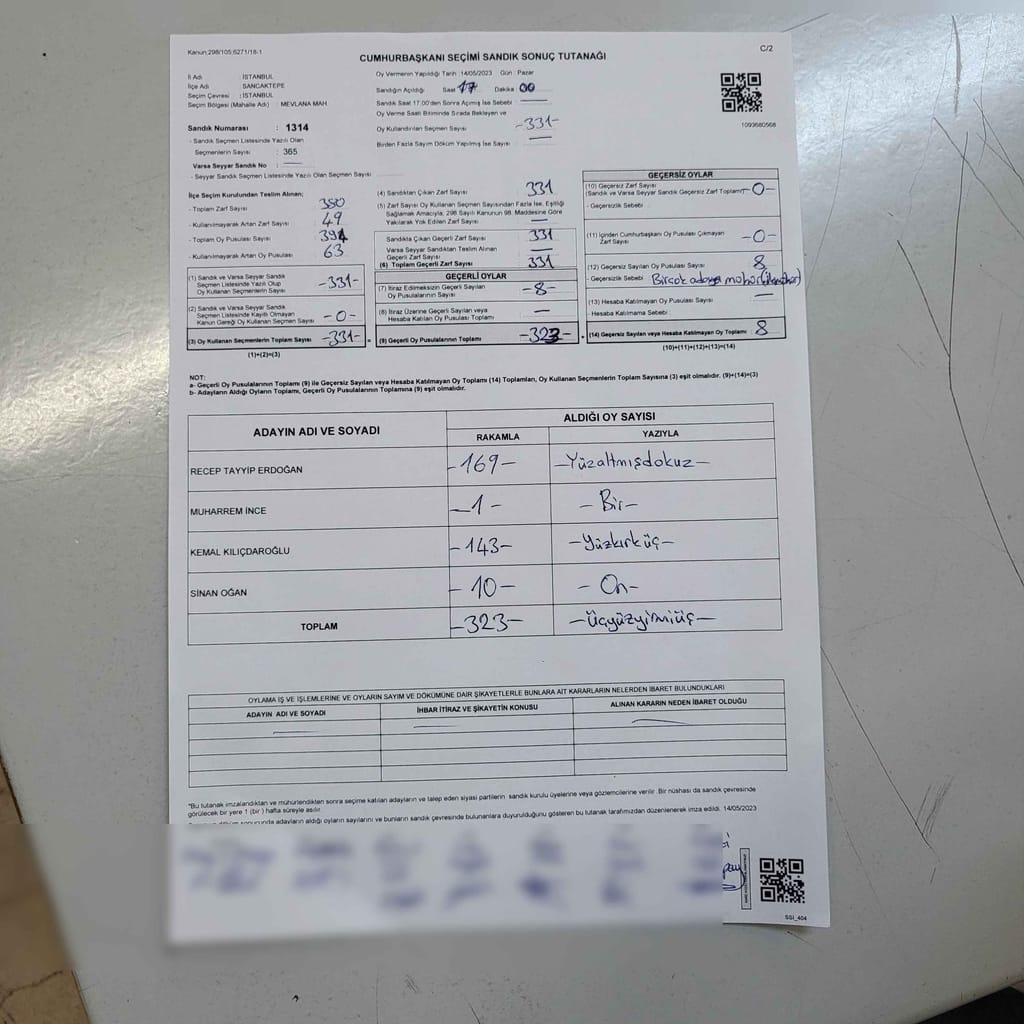 Kanun:298/105;6271/18-1
C/2
CUMHURBAŞKANI SEÇİMİ SANDIK SONUÇ TUTANAĞI
İl Adı : İSTANBUL
İlçe Adı : SANCAKTEPE
Seçim Çevresi : İSTANBUL
Seçim Bölgesi (Mahalle Adı) : MEVLANA MAH
Sandık Numarası : 1314
- Sandık Seçmen Listesinde Yazılı Olan
Seçmenlerin Sayısı : 365
Varsa Seyyar Sandık No :
- Seyyar Sandık Seçmen Listesinde Yazılı Olan Seçmen Sayısı :
Oy Vermenin Yapıldığı Tarih :14/05/2023 Gün : Pazar
Sandığın Açıldığı Saat 17 Dakika 00
Sandık Saat 17.00'den Sonra Açımış İse Sebebi :
Oy Verme Saati Bitiminde Sırada Bekleyen ve
Oy Kullandırılan Seçmen Sayısı -331-
Birden Fazla Sayım Döküm Yapılmış İse Sayısı :
1093680568
İlçe Seçim Kurulundan Teslim Alınan;
- Toplam Zarf Sayısı 380
- Kullanılmayarak Artan Zarf Sayısı 49
- Toplam Oy Pusulası Sayısı 394
- Kullanılmayarak Artan Oy Pusulası 63
(1) Sandık ve Varsa Seyyar Sandık
Seçmen Listesinde Yazılı Olup
Oy Kullanan Seçmenlerin Sayısı -331-
(2) Sandık ve Varsa Seyyar Sandık
Seçmen Listesinde Kayıtlı Olmayan
Kanun Gereği Oy Kullanan Seçmen Sayısı -0-
(3) Oy Kullanan Seçmenlerin Toplam Sayısı -331-
(1)+(2)=(3)
(4) Sandıktan Çıkan Zarf Sayısı 331
(5) Zarf Sayısı Oy Kullanan Seçmen Sayısından Fazla İse, Eşitliği
Sağlamak Amacıyla, 298 Sayılı Kanunun 98. Maddesine Göre
Yakılarak Yok Edilen Zarf Sayısı
Sandıkta Çıkan Geçerli Zarf Sayısı 331
Varsa Seyyar Sandıktan Teslim Alınan
Geçerli Zarf Sayısı
(6) Toplam Geçerli Zarf Sayısı 331
GEÇERLİ OYLAR
(7) İtiraz Edilmeksizin Geçerli Sayılan
Oy Pusulalarının Sayısı -8-
(8) İtiraz Üzerine Geçerli Sayılan veya
Hesaba Katılan Oy Pusulası Toplamı —
(9) Geçerli Oy Pusulalarının Toplamı -323-
GEÇERSİZ OYLAR
(10) Geçersiz Zarf Sayısı
(Sandık ve Varsa Seyyar Sandık Geçersiz Zarf Toplamı) -0-
- Geçersizlik Sebebi :
(11) İçinden Cumhurbaşkanı Oy Pusulası Çıkmayan
Zarf Sayısı -0-
(12) Geçersiz Sayılan Oy Pusulası Sayısı 8
- Geçersizlik Sebebi Birçok adaya mühür
(13) Hesaba Katılmayan Oy Pusulası Sayısı —
- Hesaba Katılmama Sebebi :
(14) Geçersiz Sayılan veya Hesaba Katılmayan Oy Toplamı 8
(10)+(11)+(12)+(13)=(14)
NOT:
a- Geçerli Oy Pusulalarının Toplamı (9) ile Geçersiz Sayılan veya Hesaba Katılmayan Oy Toplamı (14) Toplamları, Oy Kullanan Seçmenlerin Toplam Sayısına (3) eşit olmalıdır. (9)+(14)=(3)
b- Adayların Aldığı Oyların Toplamı, Geçerli Oy Pusulalarının Toplamına (9) eşit olmalıdır.
ADAYIN ADI VE SOYADI
ALDIĞI OY SAYISI
RAKAMLA YAZIYLA
RECEP TAYYİP ERDOĞAN -169- -Yüzaltmışdokuz-
MUHARREM İNCE -1- -Bir-
KEMAL KILIÇDAROĞLU -143- -Yüzkırküç-
SİNAN OĞAN -10- -On-
TOPLAM -323- -Üçyüzyirmiüç-
OYLAMA İŞ VE İŞLEMLERİNE VE OYLARIN SAYIM VE DÖKÜMÜNE DAİR ŞİKAYETLERLE BUNLARA AİT KARARLARIN NELERDEN İBARET BULUNDUKLARI
ADAYIN ADI VE SOYADI İHBAR İTİRAZ VE ŞİKAYETİN KONUSU ALINAN KARARIN NEDEN İBARET OLDUĞU
*Bu tutanak imzalandıktan ve mühürlendikten sonra seçime katılan adayların ve talep eden siyasi partilerin sandık kurulu üyelerine veya gözlemcilerine verilir. Bir nüshası da sandık çevresinde
görülecek bir yere 1 (bir) hafta süreyle asılır.
sonucunda adayların aldığı oyların sayılarını ve bunların sandık çevresinde bulunanlara duyurulduğunu gösteren bu tutanak tarafımızdan düzenlenerek imza edildi. 14/05/2023
SGI_404